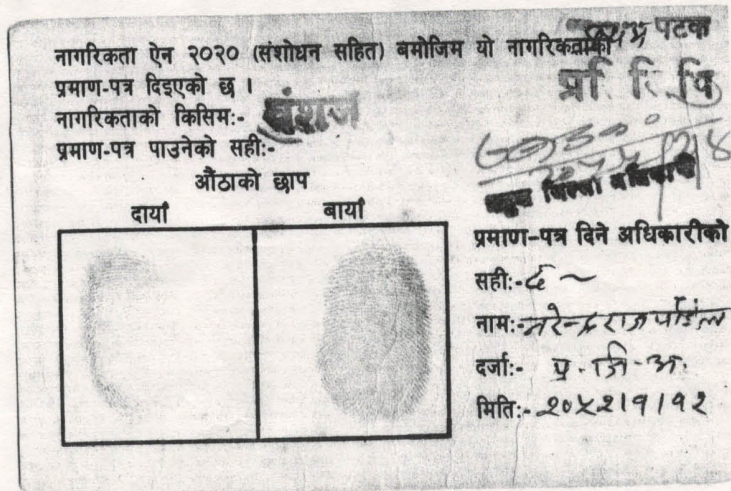 नागरिकता ऐन २०२० (संशोधन सहित) बमोजिम यो नागरिकताको
प्रमाण-पत्र दिइएको छ ।
नागरिकताको किसिम:- वंशज
प्रमाण-पत्र पाउनेको सही:-
औंठाको छाप
दायाँ बायाँ
पटक
प्रमुख जिल्ला अधिकारी
प्रमाण-पत्र दिने अधिकारीको
सही:-
नाम:- नरेन्द्रराज पौडेल
दर्जा:- प्र. जि. अ.
मिति:- २०५२।१।१२